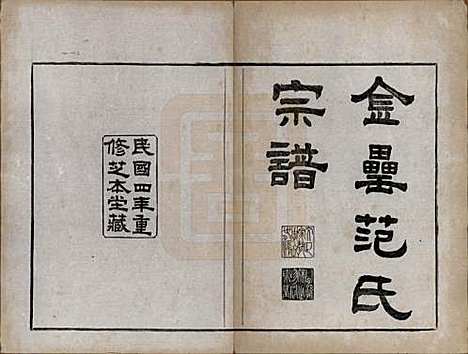 金罍范氏
宗譜
民國四年重
修芝本堂藏